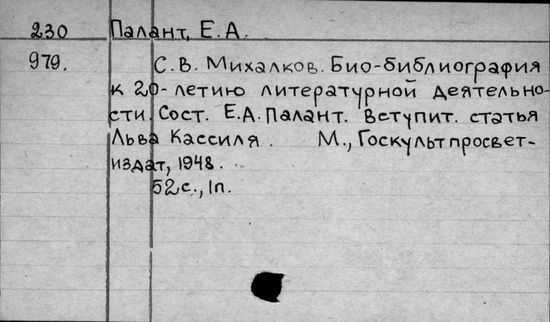 230 Палант, Е.А.
979. С.В. Михалков. Био-библиография
к 20-летию литературной деятельно-
сти. Сост. Е.А. Палант. Вступит. статья
Льва Кассиля. М., Госкультпросвет-
издат, 1948.
52с., 1п.